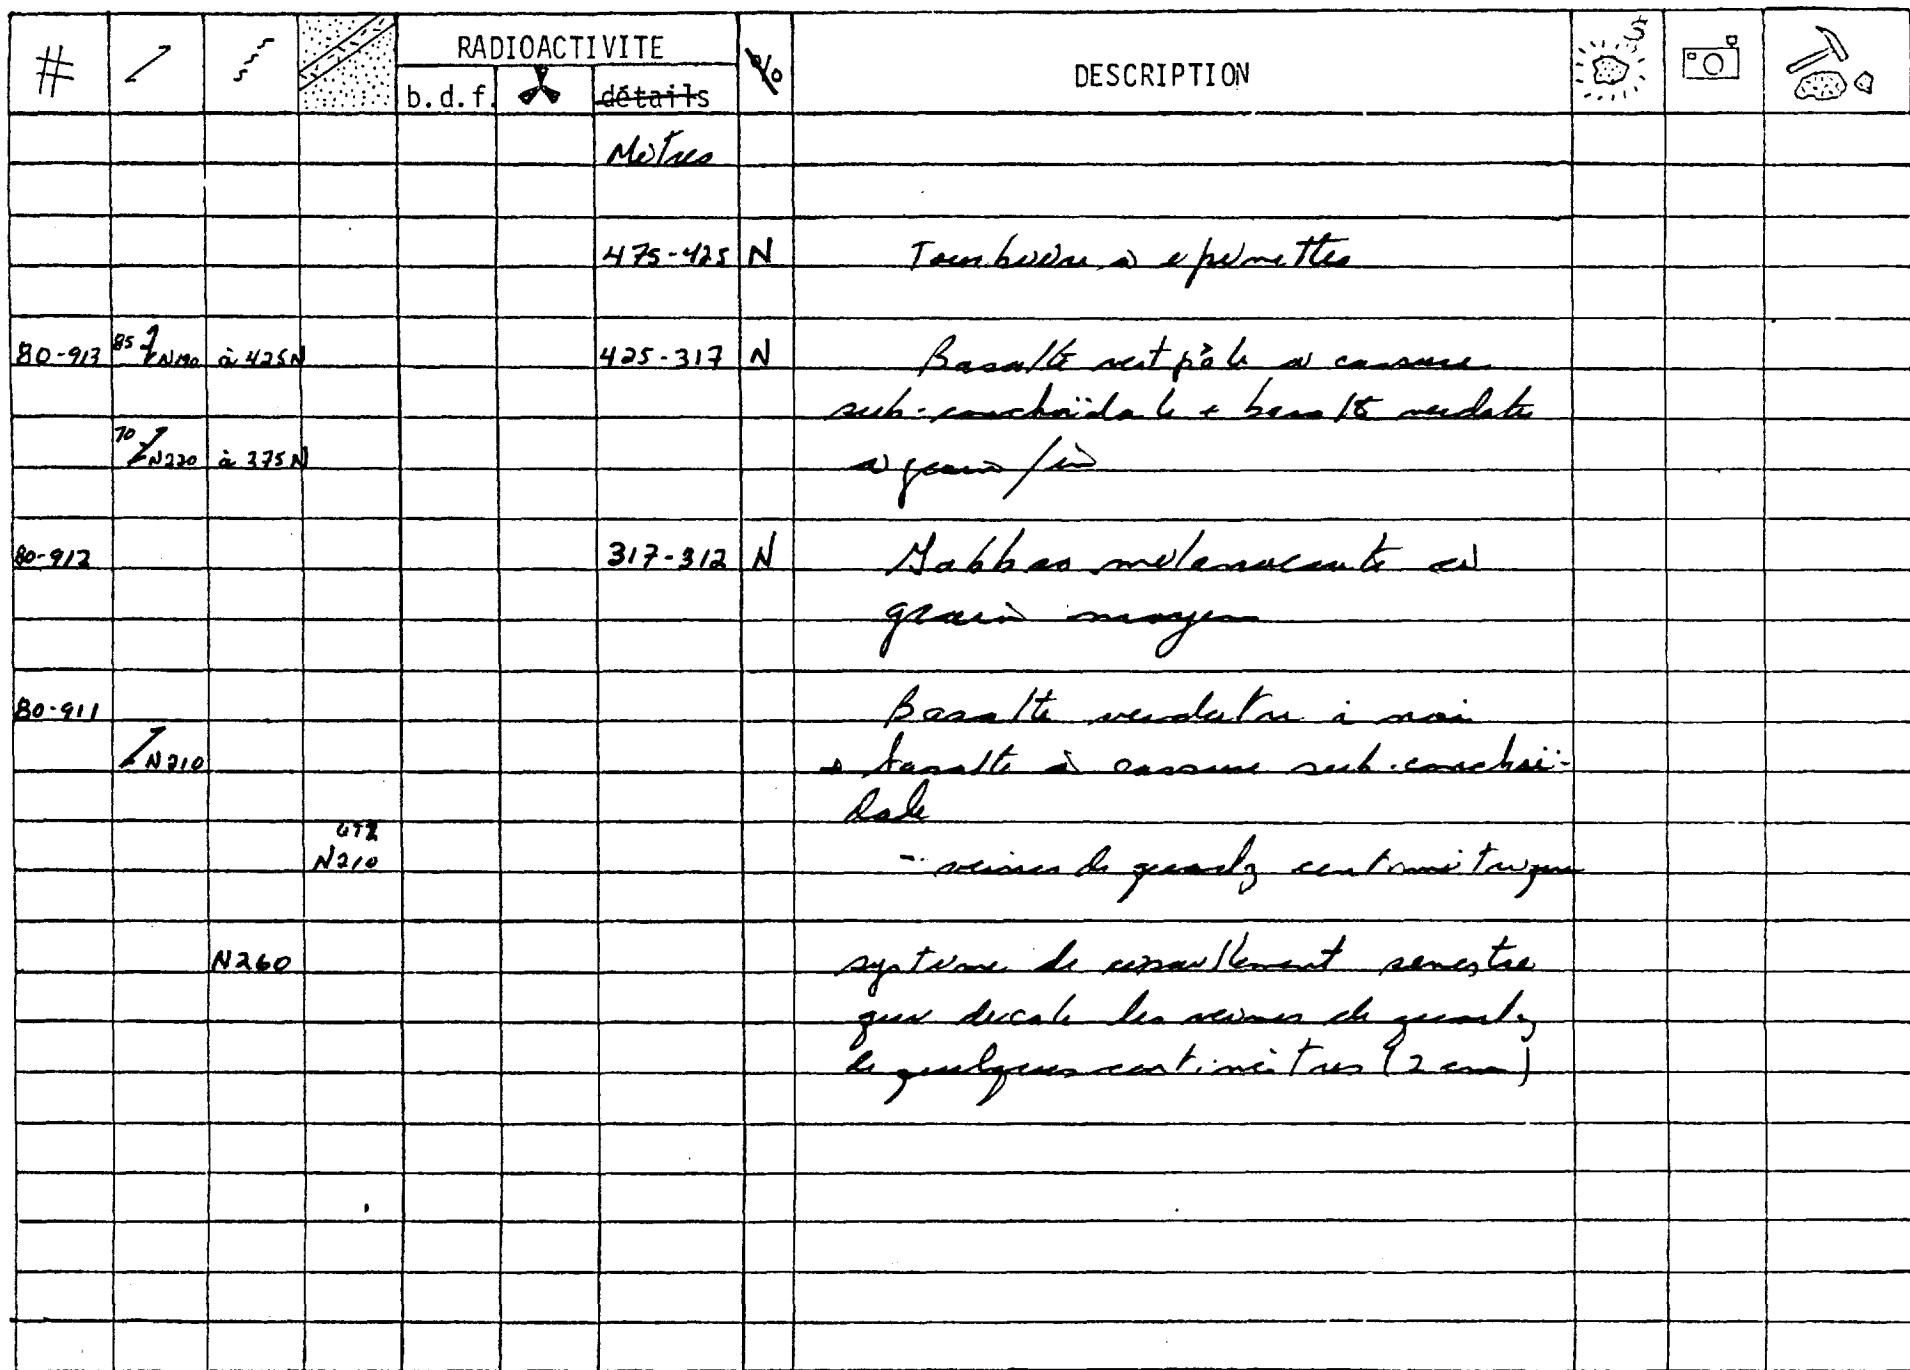 # RADIOACTIVITE % DESCRIPTION
b.d.f. détails
Mètres
475-425 N Tourbière à epinettes
80-913 85 N190 à 425N 425-317 N Basalte vert pâle à cassure
sub-conchoïdale + basalte verdatre
70 N220 à 375N à grain fin
80-912 317-312 N Gabbro mélanocrate à
grain moyen
80-911 Basalte verdatre à noir
N210 + basalte à cassure sub-conchoï-
dale
QTZ
N210 - veines de quartz centimètrique
N260 système de cisaillement senestre
qui décale les veines de quartz
de quelques centimètres (2 cm)